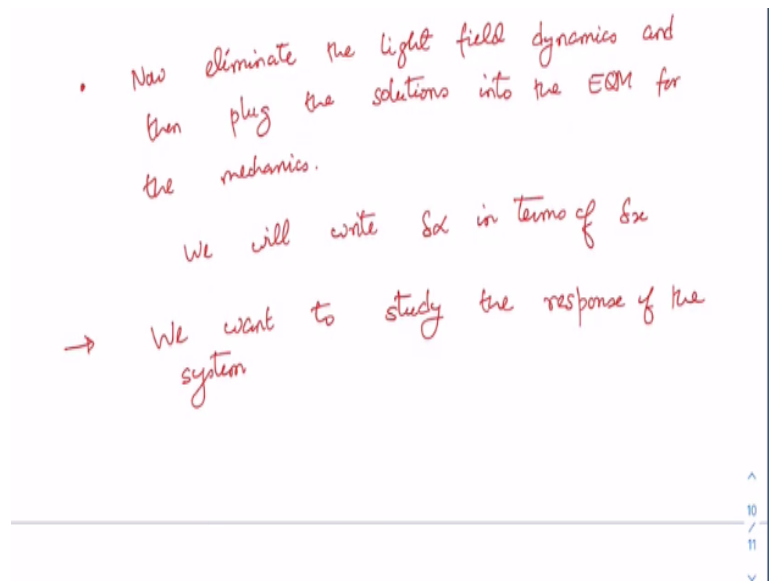 • Now eliminate the light field dynamics and
then plug the solutions into the EQM for
the mechanics.
We will write δα in terms of δx
→ We want to study the response of the
system
10
/
11